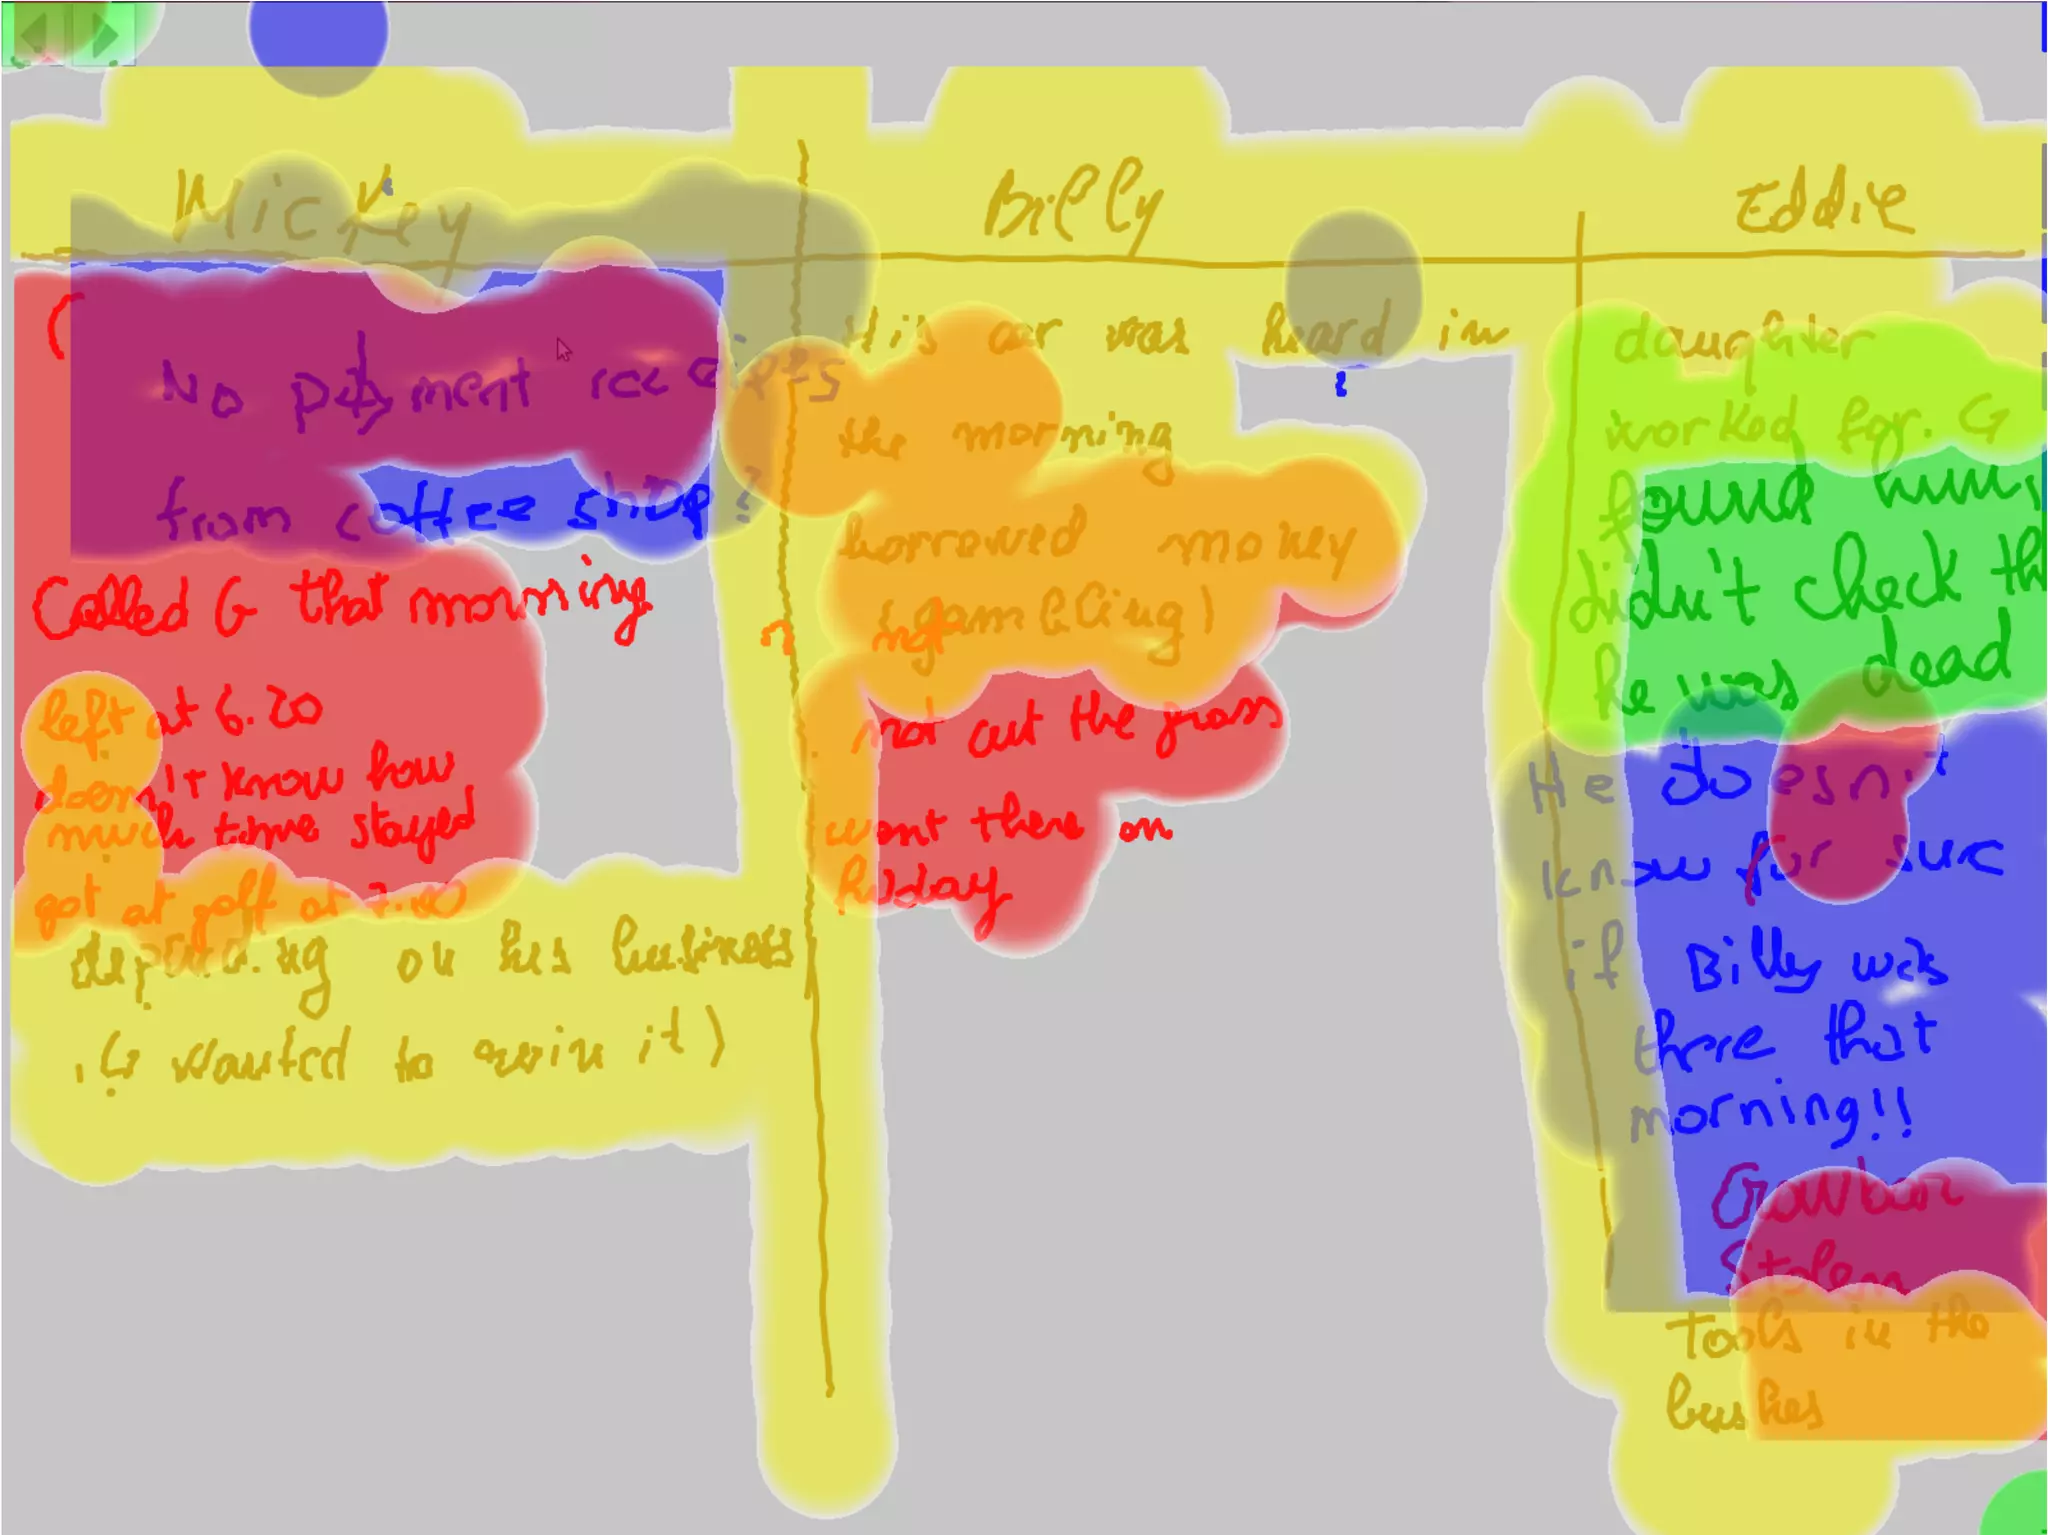 Mickey Billy Eddie
No payment receipts
from coffee shop?
Called G that morning
left at 6.20
doesn't know how
much time stayed
got at golf at 7.00
depending on his business
(G wanted to ruin it)
His car was heard in
the morning
borrowed money
(gambling)
not cut the grass
went there on
friday
daughter
worked for. G
found him,
didn't check th
he was dead
He doesn't
know for sure
if Billy was
there that
morning!!
Crowbar
Stolen
Tools in the
bushes